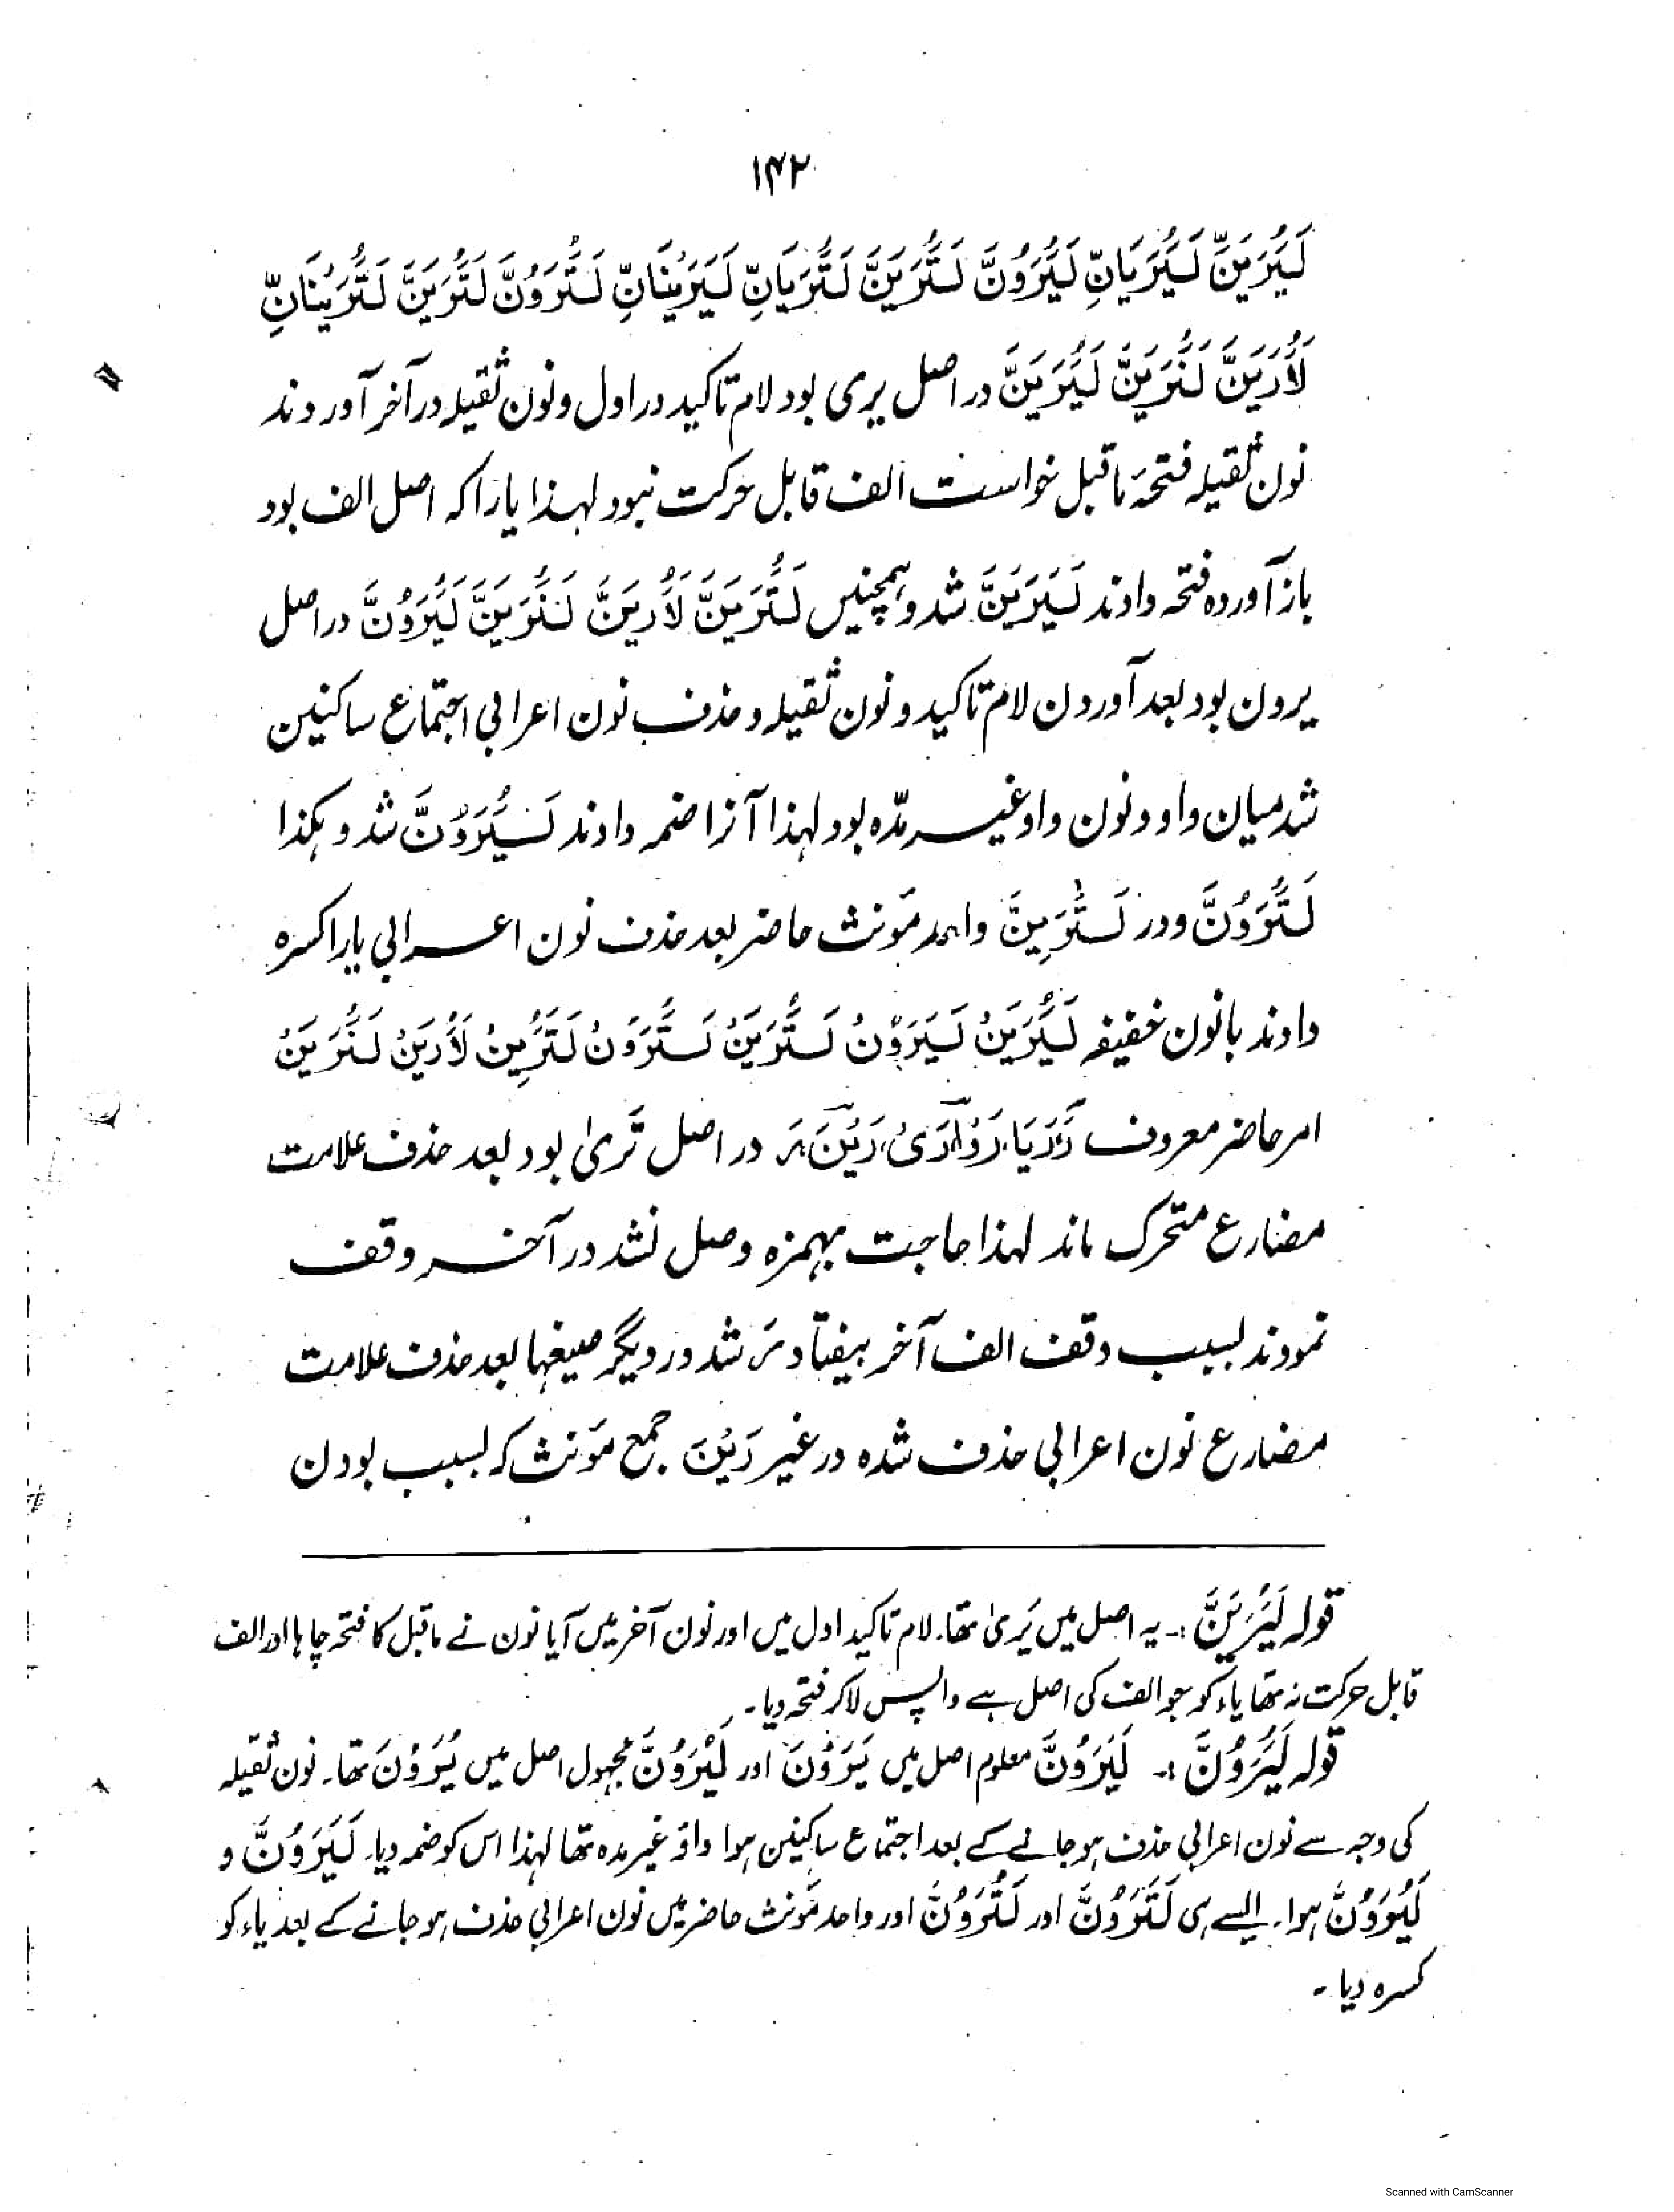 ۱۴۲
لَيُرَيَنَّ لَيُرَيَانِّ لَيُرَوُنَّ لَتُرَيَنَّ لَتُرَيَانِّ لَيُرَيْنَانِّ لَتُرَوُنَّ لَتُرَيِنَّ لَتُرَيْنَانِّ
لَأُرَيَنَّ لَنُرَيَنَّ لَيُرَيَنَّ در اصل یری بود لام تاکید در اول و نون ثقیلہ در آخر آوردند
نون ثقیلہ فتحہ ماقبل خواست الف قابل حرکت نبود لہذا یا را کہ اصل الف بود
باز آوردہ فتحہ دادند لَيُرَيَنَّ شد و ہمچنیں لَتُرَيَنَّ لَأُرَيَنَّ لَنُرَيَنَّ لَيُرَوُنَّ در اصل
یرون بود بعد آوردن لام تاکید و نون ثقیلہ و حذف نون اعرابی اجتماع ساکنین
شد میان واو و نون واو غیر مدّہ بود لہذا آنرا ضمہ دادند لَيُرَوُنَّ شد و ہکذا
لَتُرَوُنَّ و در لَتُرَيِنَّ واحد مؤنث حاضر بعد حذف نون اعرابی یا را کسرہ
دادند بانون خفیفہ لَيُرَيَنْ لَيُرَوُنْ لَتُرَيَنْ لَتُرَوُنْ لَتُرَيِنْ لَأُرَيَنْ لَنُرَيَنْ
امر حاضر معروف رَ، رَيَا، رَوْا، رَىْ، رَيْنَ، رَ در اصل تَرىٰ بود بعد حذف علامت
مضارع متحرک ماند لہذا حاجت بہمزہ وصل نشد در آخر وقف
نمودند بسبب وقف الف آخر بیفتاد رَ شد و در دیگر صیغہا بعد حذف علامت
مضارع نون اعرابی حذف شدہ در غیر رَيْنَ جمع مؤنث کہ بسبب بودن
قولہ لَيُرَيَنَّ :۔ یہ اصل میں یَریٰ تھا۔ لام تاکید اول میں اور نون آخر میں آیا نون نے ماقبل کا فتحہ چاہا اور الف
قابل حرکت نہ تھا یاء کو جو الف کی اصل ہے واپس لا کر فتحہ دیا۔
قولہ لَيُرَوُنَّ :۔ لَيَرَوُنَّ معلوم اصل میں يَرَوْنَ اور لَيُرَوُنَّ مجہول اصل میں يُرَوْنَ تھا۔ نون ثقیلہ
کی وجہ سے نون اعرابی حذف ہو جانے کے بعد اجتماع ساکنین ہوا واؤ غیر مدہ تھا لہذا اس کو ضمہ دیا۔ لَيَرَوُنَّ و
لَيُرَوُنَّ ہوا۔ ایسے ہی لَتَرَوُنَّ اور لَتُرَوُنَّ اور واحد مؤنث حاضر میں نون اعرابی حذف ہو جانے کے بعد یاء کو
کسرہ دیا۔
Scanned with CamScanner